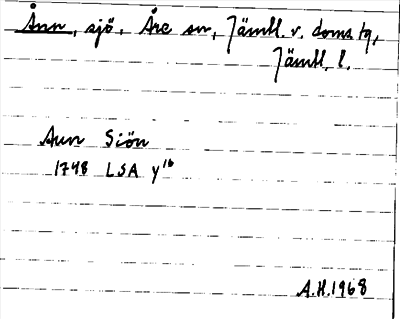 Ånn, sjö, Åre sn, Jämtl. v. doms tg,
Jämtl. l.
Aun Siön
1748 LSA y¹⁶
A.H. 1968